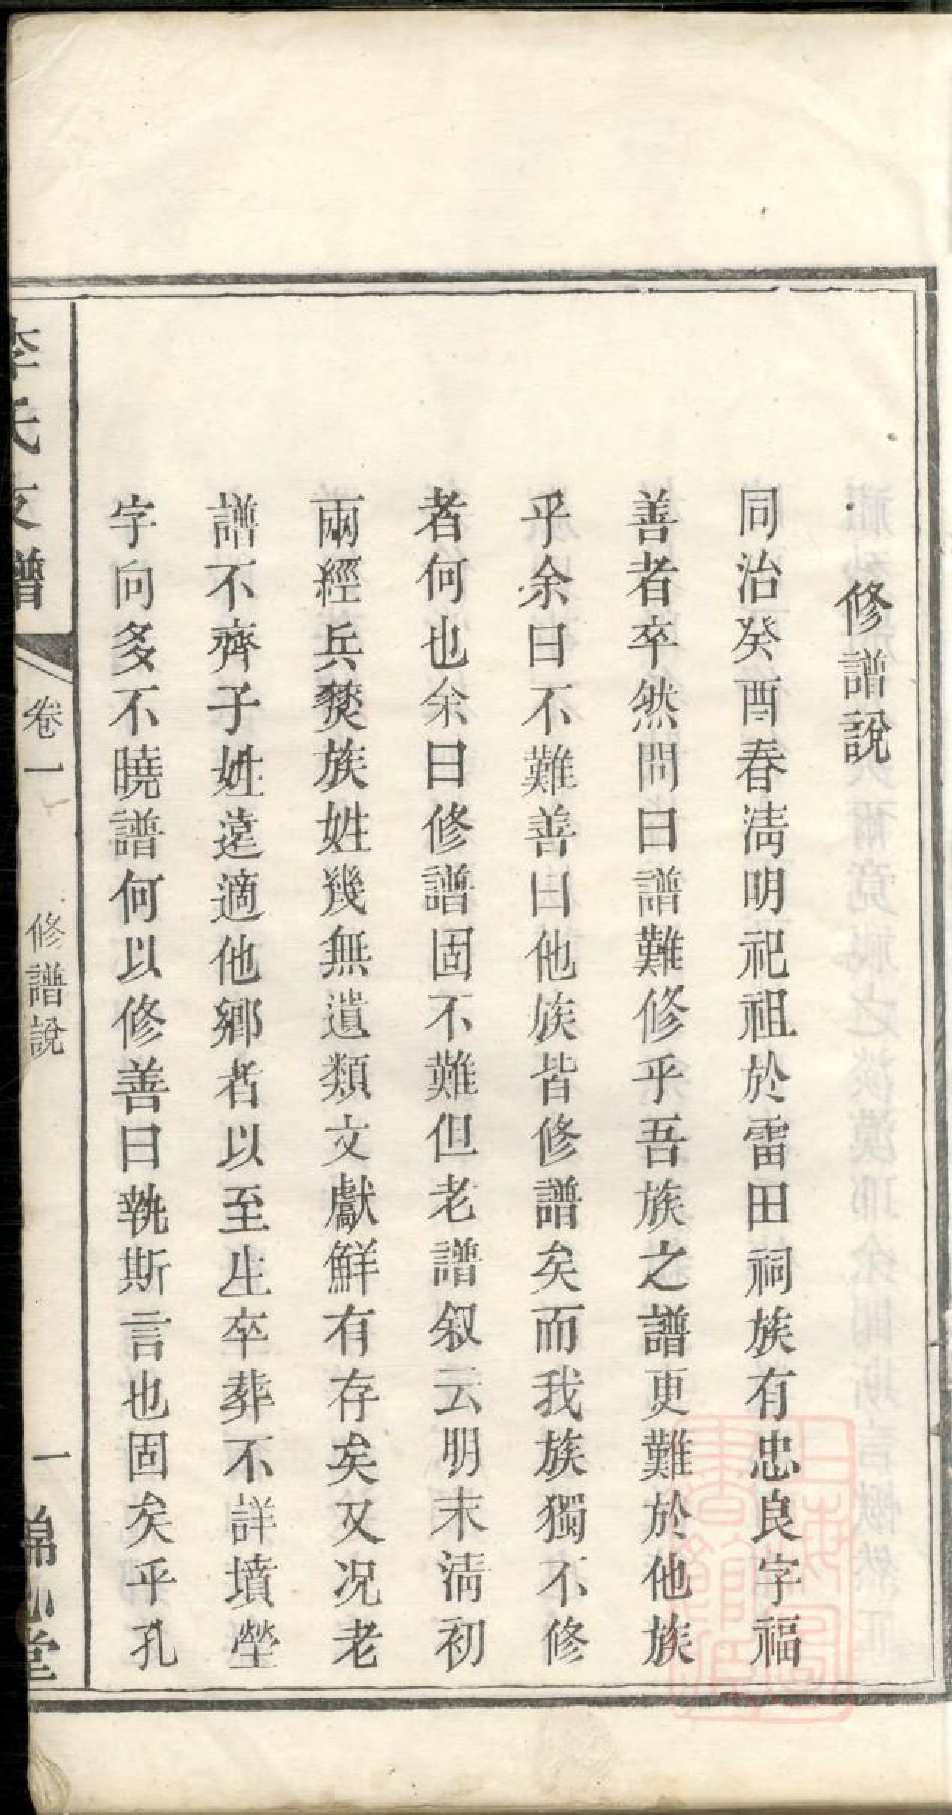 修譜說
同治癸酉春淸明祀祖於雷田祠族有忠良字福
善者卒然問曰譜難修乎吾族之譜更難於他族
乎余曰不難善曰他族皆修譜矣而我族獨不修
者何也余曰修譜固不難但老譜叙云明末淸初
兩經兵燹族姓幾無遺類文獻鮮有存矣又况老
譜不齊子姓遠適他鄉者以至生卒葬不詳墳塋
字向多不曉譜何以修善曰執斯言也固矣乎孔
李氏支譜
卷一
修譜說
一
堂